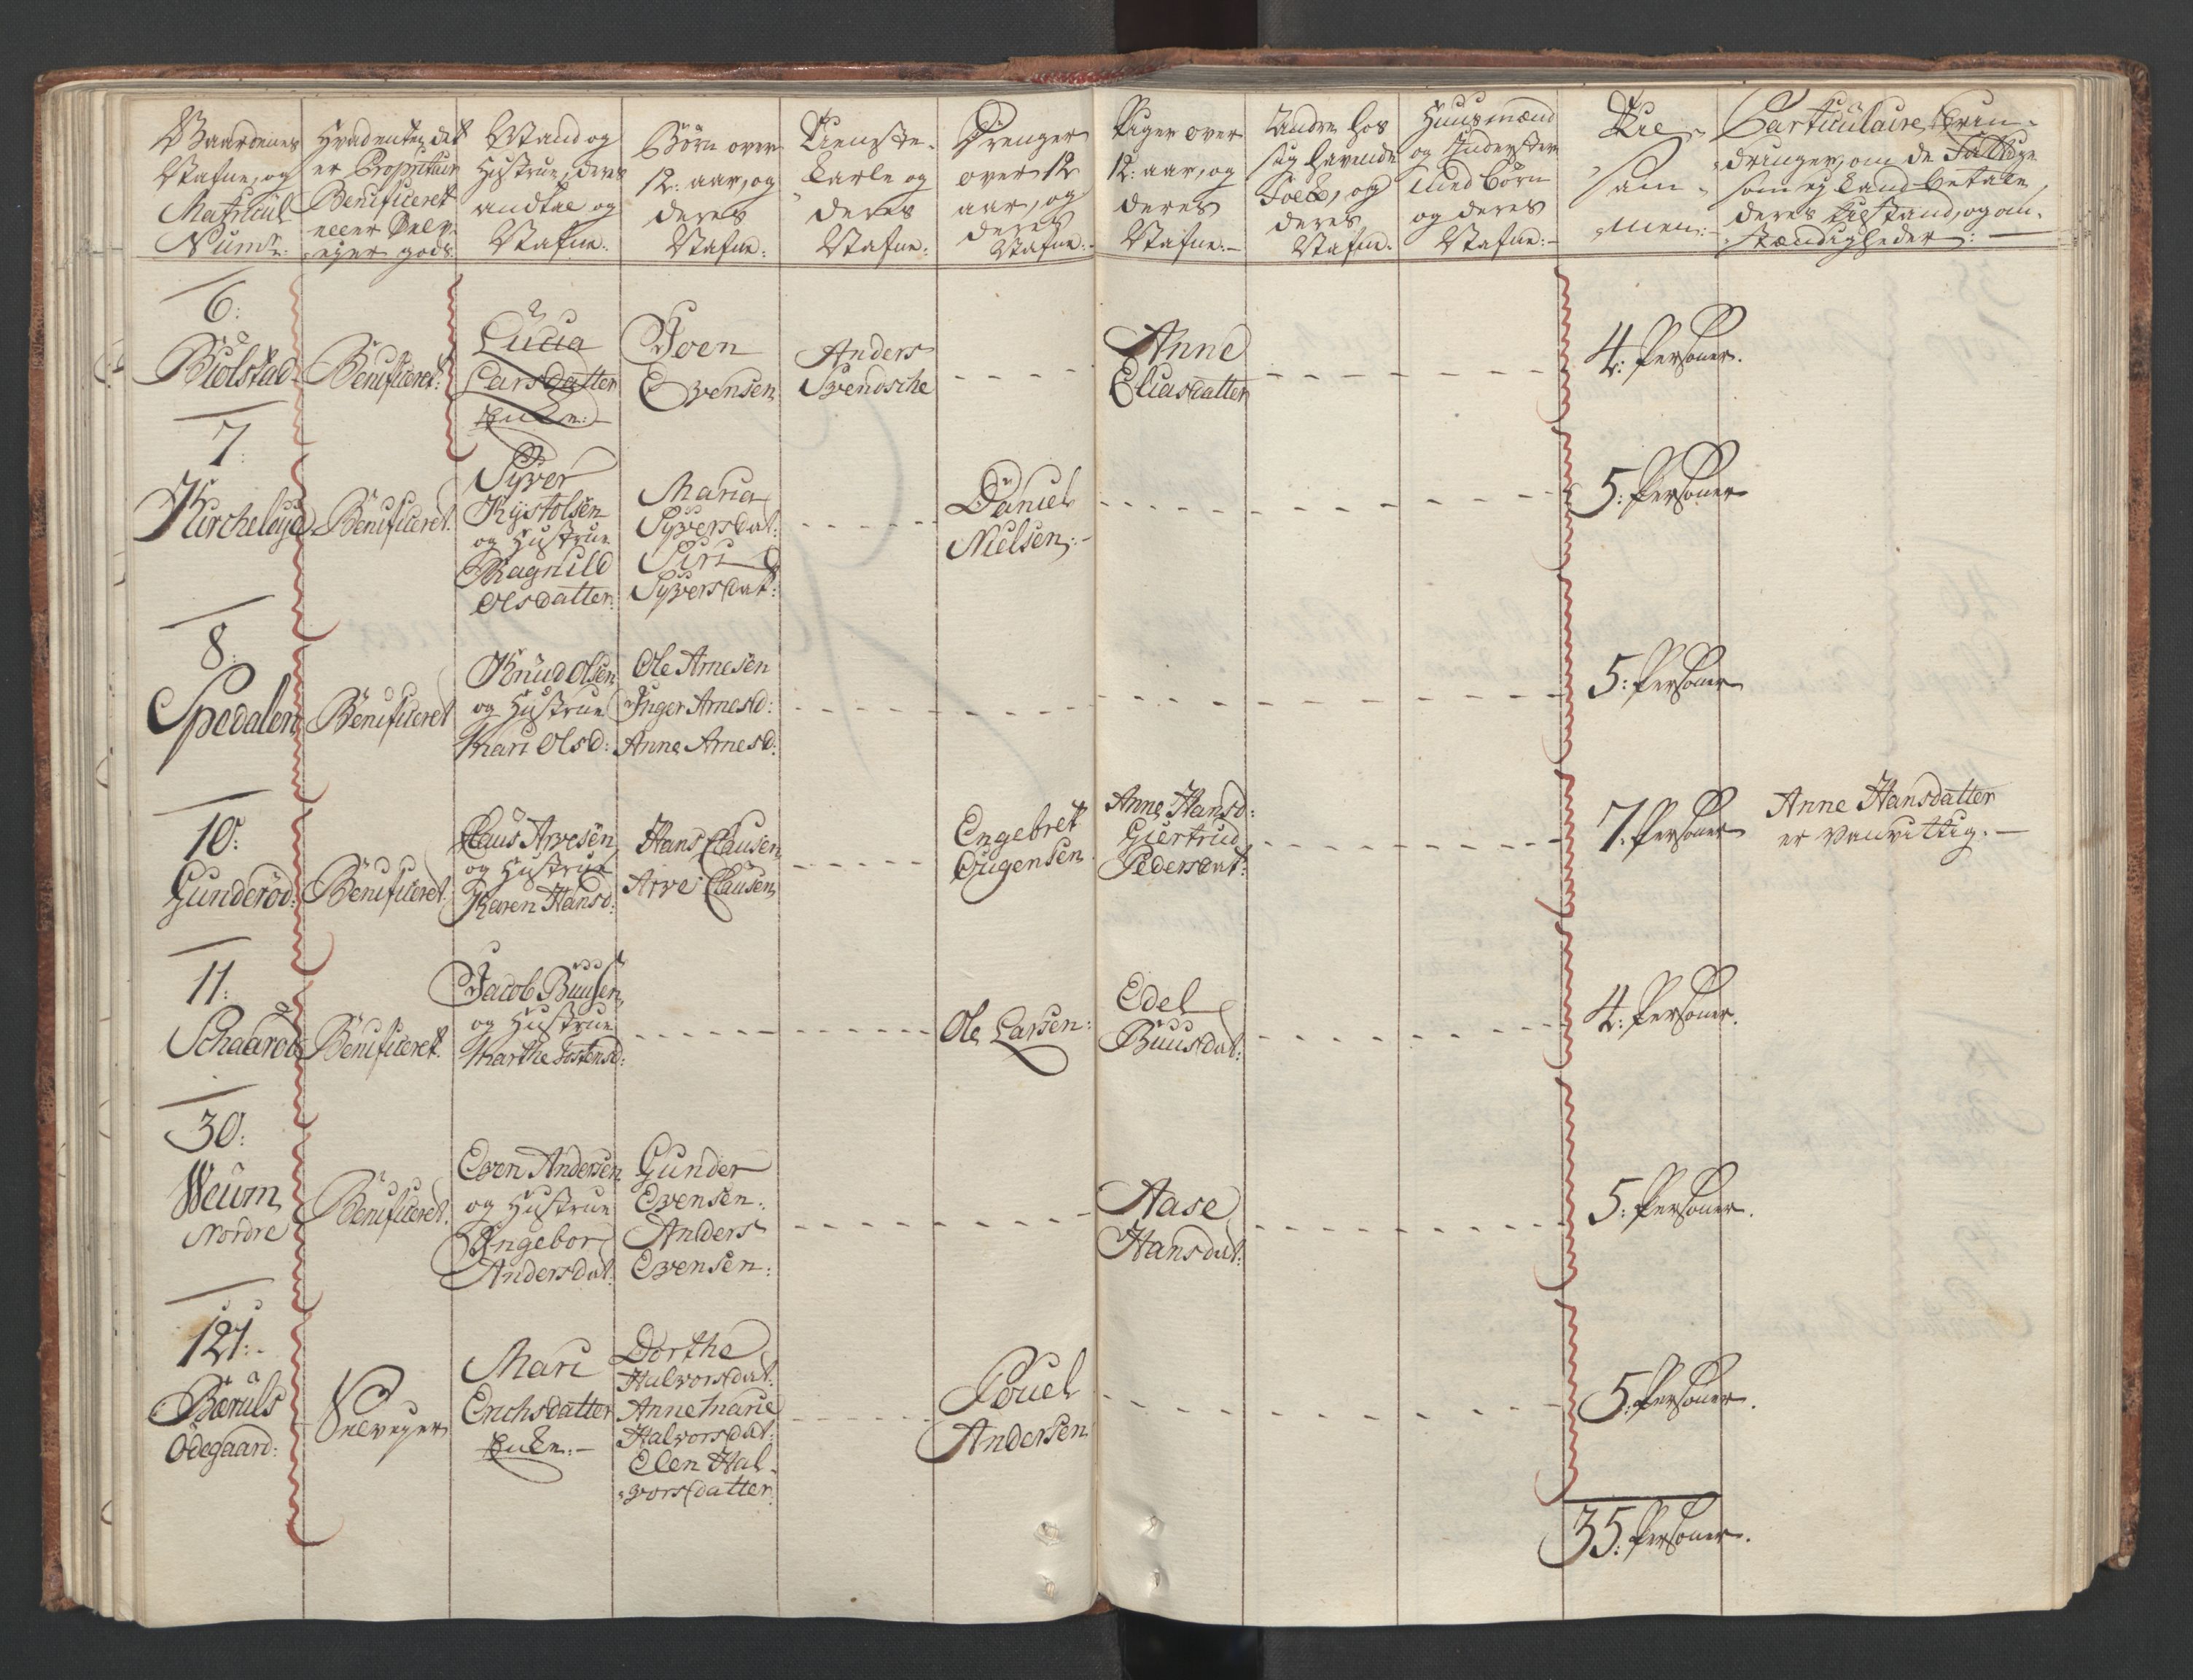 Gaardenes
Nafne, og
Matricul
Numr:
Hvadenten det
er Proprietair
Benificeret
eller Selv-
ejer gods
Mand og
Hustrue, deres
andtal og
Nafne:
Børn over
12: aar, og
deres
Nafne:
Tieneste-
karle og
deres
Nafne:
Drenger
over 12
aar, og
deres
Nafne:-
Piger over
12: aar, og
deres
Nafne:-
Andre hos
sig havende
Folck, og
deres
Nafne:
Huusmænd
og Inderster
med børn
og deres
Nafne:-
Til-
sam-
men:-
Particulaire Erin-
dringer, om de Fattige
som ej kand betale,
deres tilstand, og om-
stændigheder: -
6:
Biölstad
Benificeret:
Lucia
Larsdatter
Encke:-
Joen
Evensen
Anders
Svendsche
Anne
Eliasdatter
4: Personer.
7:
Kircheløye
Benificeret.
Syver
Kystolsen
og Hustrue
Ragnild
Olsdatter:
Maria
Syversdat:
Siri
Syversdat:
Daniel
Nielsen:-
5: Personer
8:
Spedalen
Benificeret
Knud Olsen
og Hustrue
Mari Olsd:
Ole Arnesen
Inger Arnesd:
Anne Arnesd:
5: Personer
10:
Gunderöd:
Benificeret.
Claus Arvesen
og Hustrue
Karen Hansd:
Hans Clausen
Arve Clausen
Engebret
Ougensen
Anne Hansd:
Giertrud
Pedersdat:
7: Personer
Anne Hansdatter
er vanvittig.-
11:
Schaaröd
Benificeret.
Jacob Buusen
og Hustrue
Marthe Tostensd:
Ole Larsen:
Edel
Buusdat:
4: Personer.
30:
Weum
Nordre
Benificeret.
Even Andersen
og Hustrue
Engebor
Andersdat:
Gunder
Evensen:
Anders
Evensen:
Aase
Hansdat:
5: Personer.
121:-
Bæruls
Ödegaard:
Selvejer
Mari
Erichsdatter
Encke:-
Dorthe
Halvorsdat:
Anne Marie
Halvorsdat:
Elen Hal-
vorsdatter:
Pouel
Andersen
5: Personer.
35: Personer.